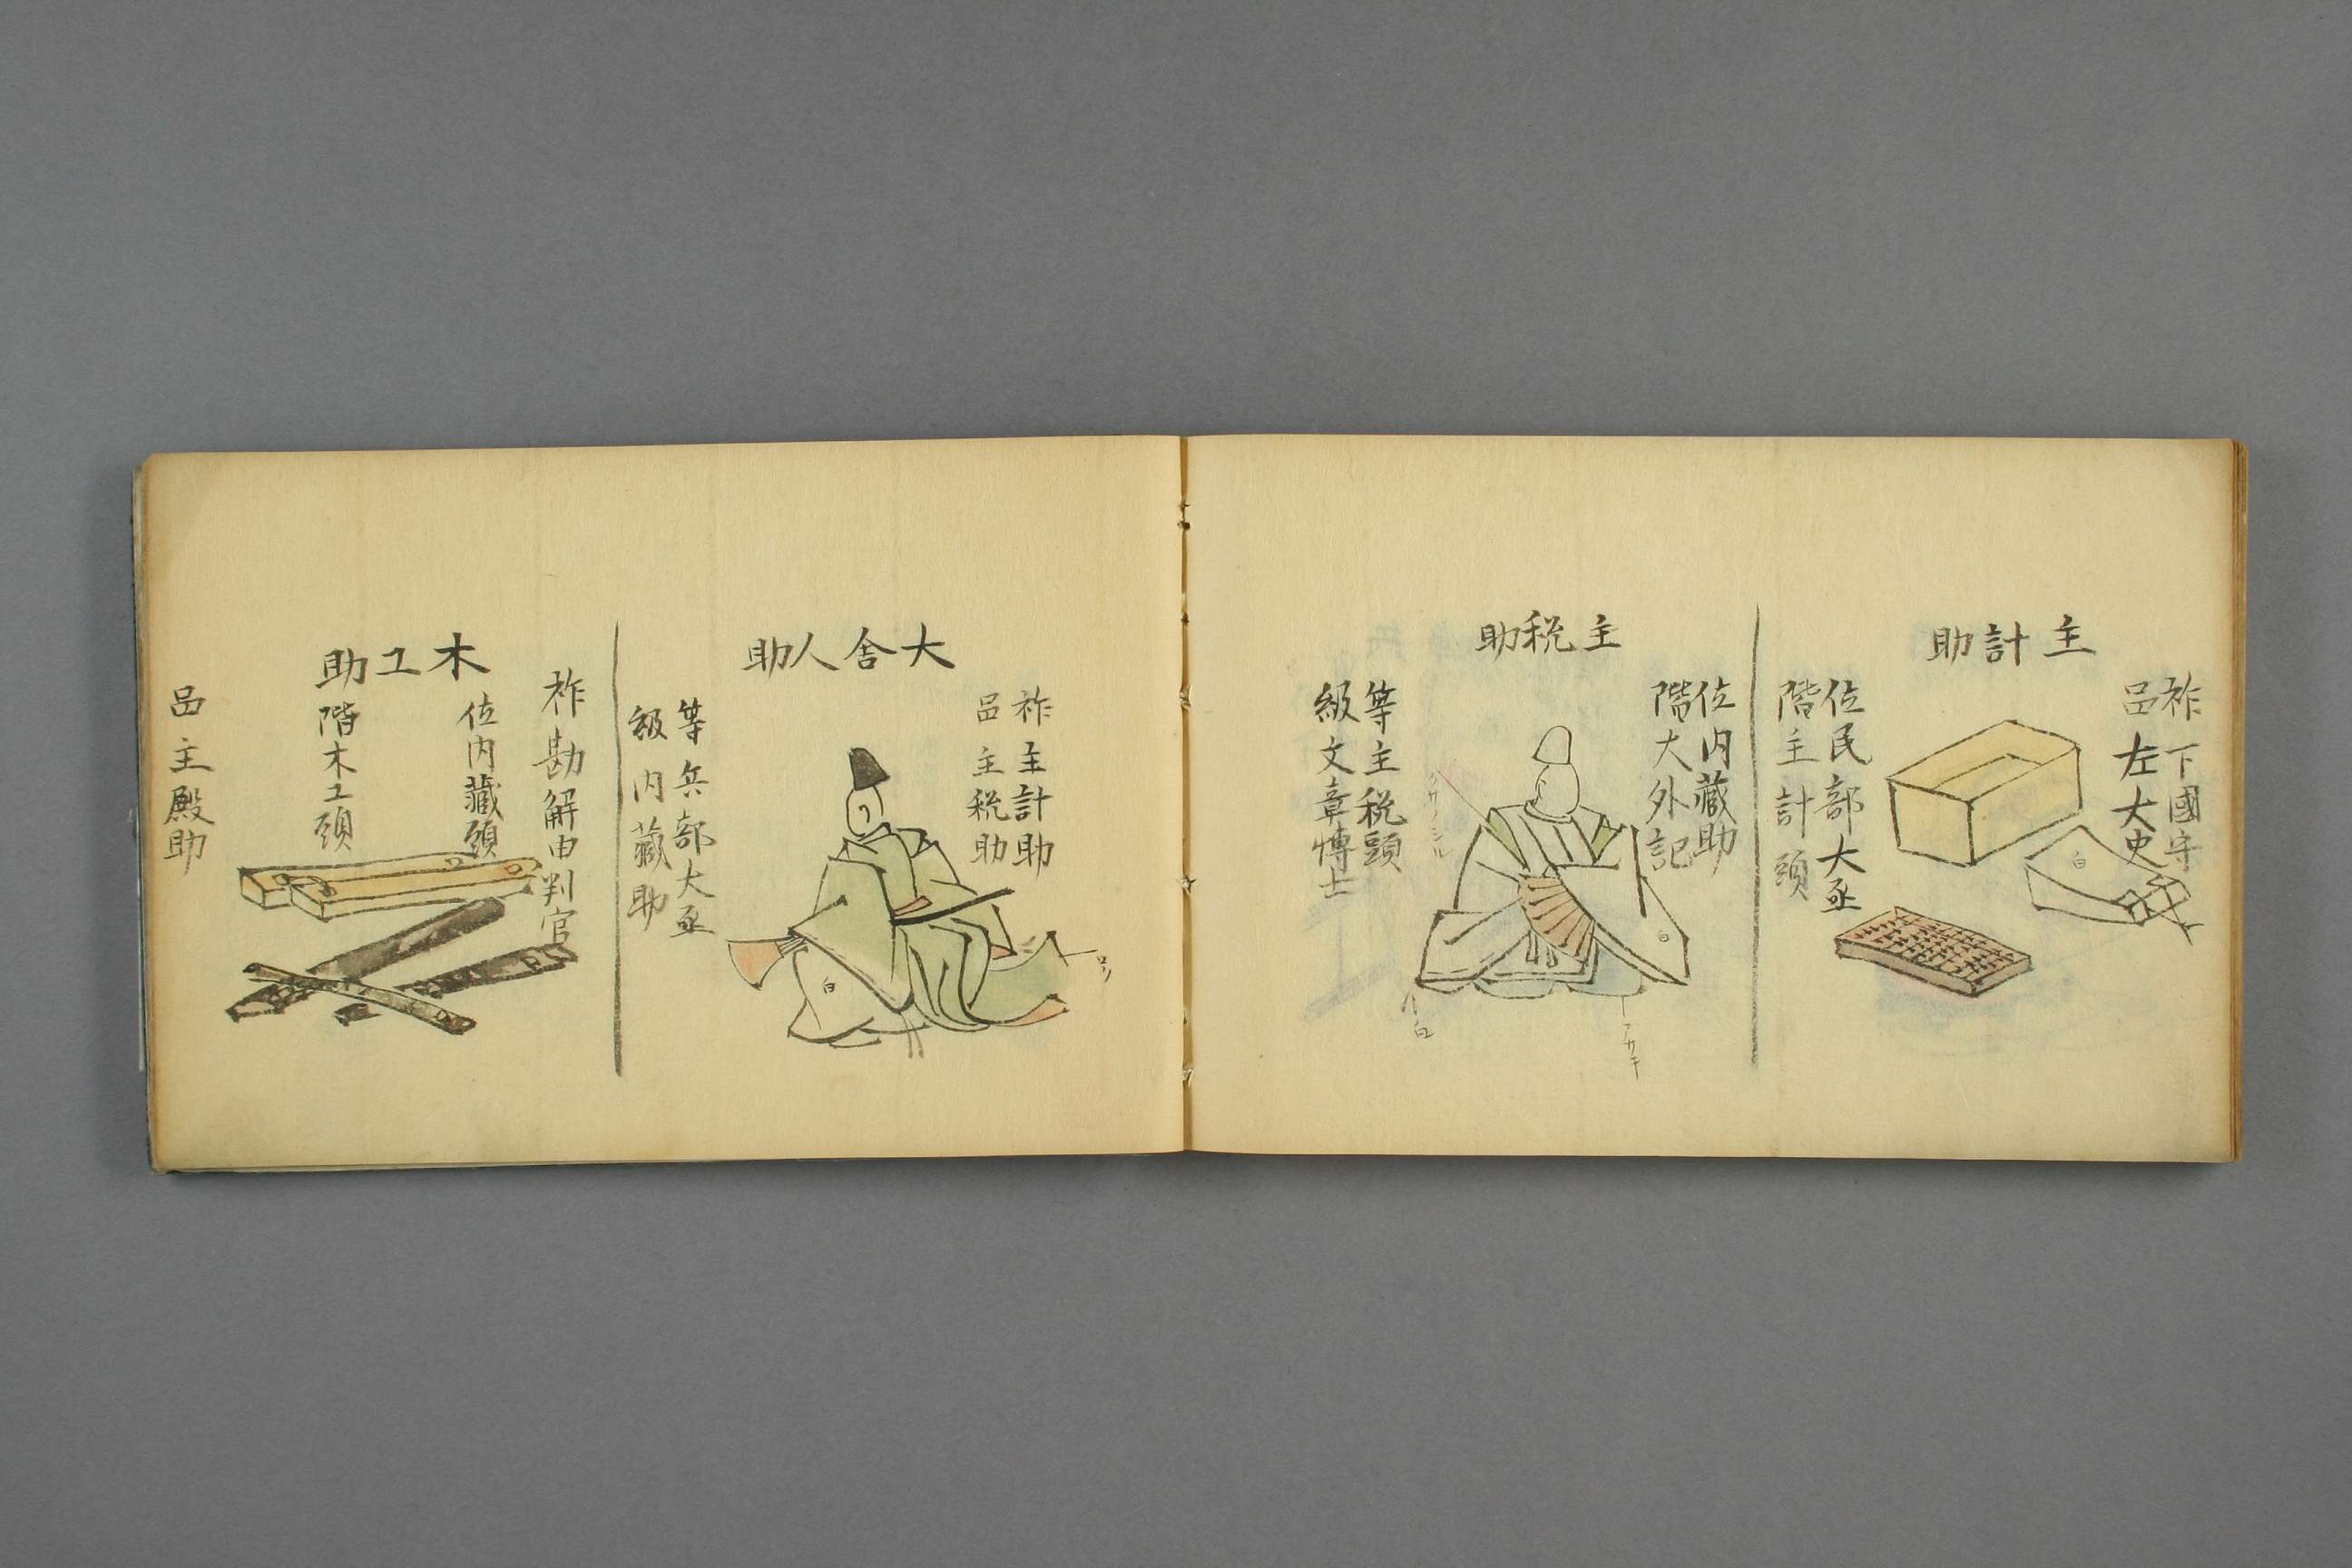 主計助
祚 下國守
品 左大史
白
位民部大丞
階主計頭
主税助
位内藏助
階大外記
白
アカキ
白
等主税頭
級文章博士
大舎人助
祚主計助
品主税助
白
等兵部大丞
級内藏助
木工助
祚勘解由判官
位内藏頭
階木工頭
品主殿助